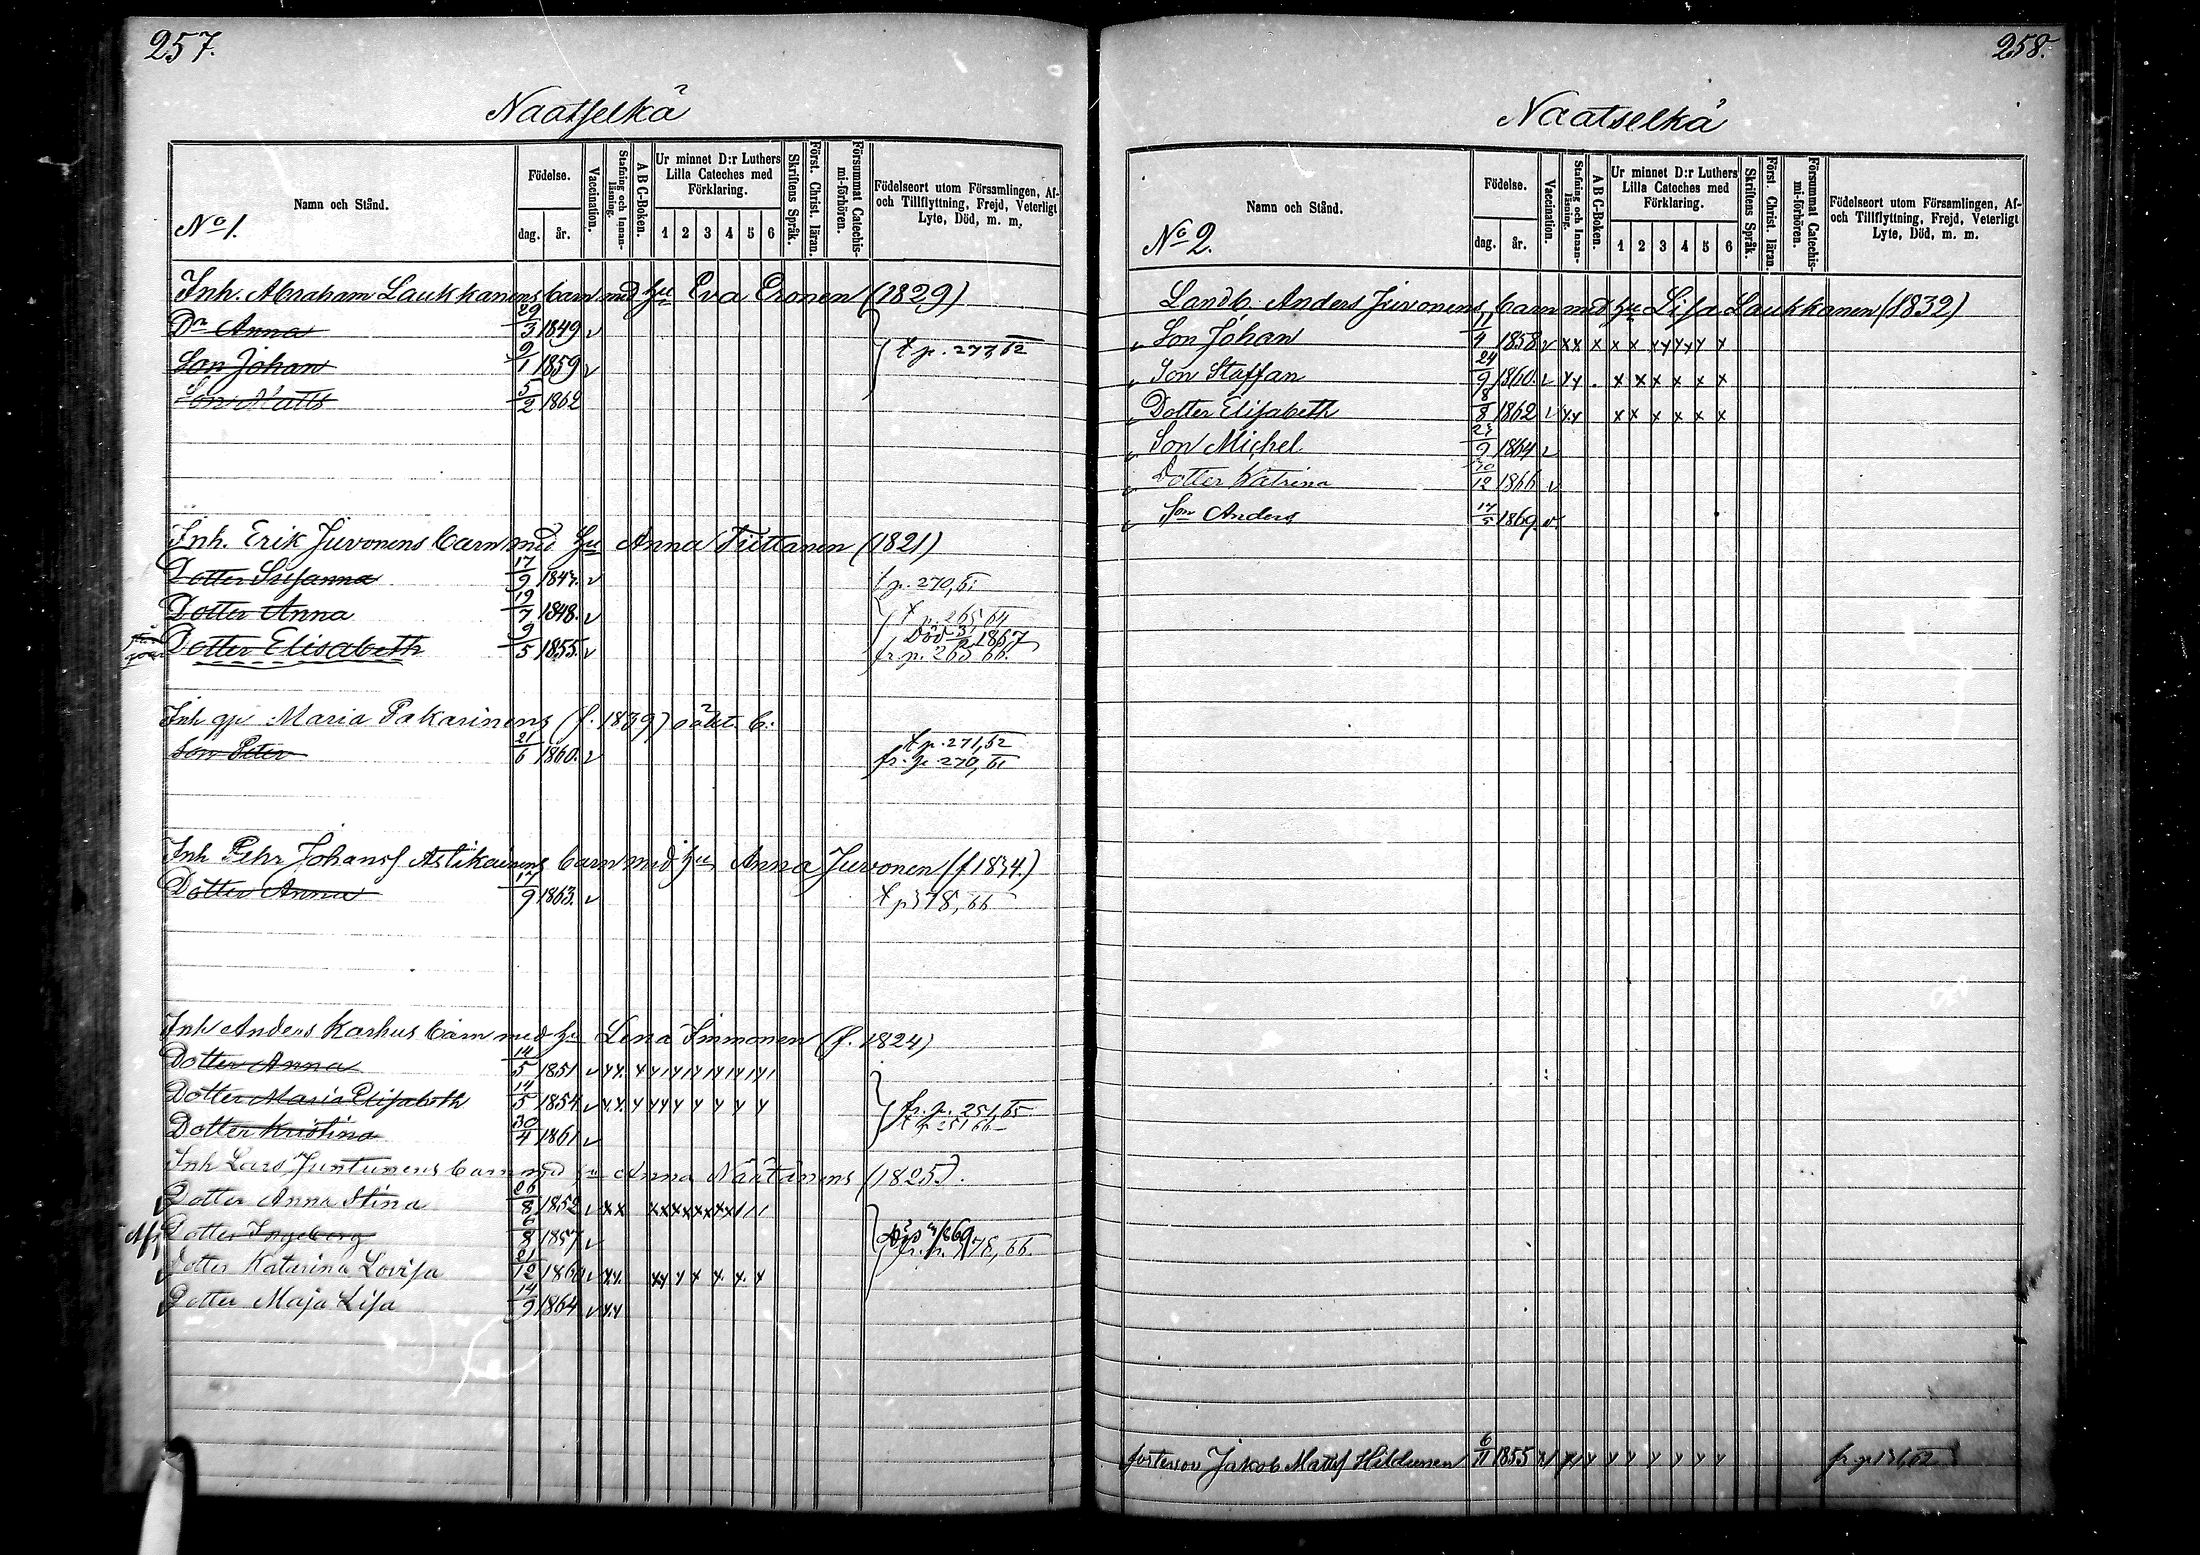 257.
Naatselkä
Namn och Stånd.
No 1.
Födelse.
dag. år.
Vaccination.
Stafning och Innanläsning.
A B C-Boken.
Ur minnet D:r Luthers Lilla Cateches med Förklaring.
1 2 3 4 5 6
Skriftens Språk.
Först. Christ. läran.
Försummat Catechismi-förhören.
Födelseort utom Församlingen, Af-
och Tillflyttning, Frejd, Veterligt
Lyte, Död, m. m.
Inh. Abraham Laukkanens barn med hu Eva Eronen (1829)
Dr Anna 29/3 1849 v
Son Johan 9/1 1859 v t p. 273, 62
Son Matts 5/2 1862
Inh. Erik Juvonens barn med hu Anna Tiittanen (1821)
Dotter Susanna 17/9 1847. v t p. 270, 61
Dotter Anna 19/7 1848. v t p. 265 64
Dotter Elisabeth 9/5 1855. v Död 1867
fr. p. 265 66.
Inh qp Maria Pakarinens (f. 1839) oäkt. b.
Son Peter 21/6 1860. v t p. 271, 62
fr. p 270, 61
Inh Pehr Johansf Astikainens barn med hu Anna Juvonen (f 1834.)
Dotter Anna 17/9 1863. v t p 378, 66
Inh Anders Karhus barn med hu Lena Immonen (f. 1824)
Dotter Anna 14/5 1851 v
Dotter Maria Elisabeth 14/5 1854 v fr. p. 251, 65
Dotter Kristina 30/4 1861 v t p 251 66
Inh Lars Juntunens barn med hu Anna Näätänens (1825).
Dotter Anna Stina 26/8 1852 v x x
Dotter Ingeborg 6/8 1857 v
Dotter Katarina Lovisa 21/12 1860 v x x
Dotter Maja Lisa 14/9 1864 v x x
258.
Naatselkä
Namn och Stånd.
No 2.
Födelse.
dag. år.
Vaccination.
Stafning och Innanläsning.
A B C-Boken.
Ur minnet D:r Luthers Lilla Cateches med Förklaring.
1 2 3 4 5 6
Skriftens Språk.
Först. Christ. läran.
Försumat Catechismi-förhören.
Födelseort utom Församlingen, Af-
och Tillflyttning, Frejd, Veterligt
Lyte, Död, m. m.
Landb. Anders Juvonens barn med hu Lisa Laukkanen (1832)
Son Johan 11/4 1858 v x x x x x x x x x x x
Son Staffan 24/9 1860. v x x . x x x x x x
Dotter Elisabeth 18/8 1862 v x x x x x x x x
Son Michel 9 1864 v
Dotter Katrina 30/12 1866 v
Son Anders 17/5 1869. v.
fosterson Jakob Mattsf Hildunen 6/11 1855